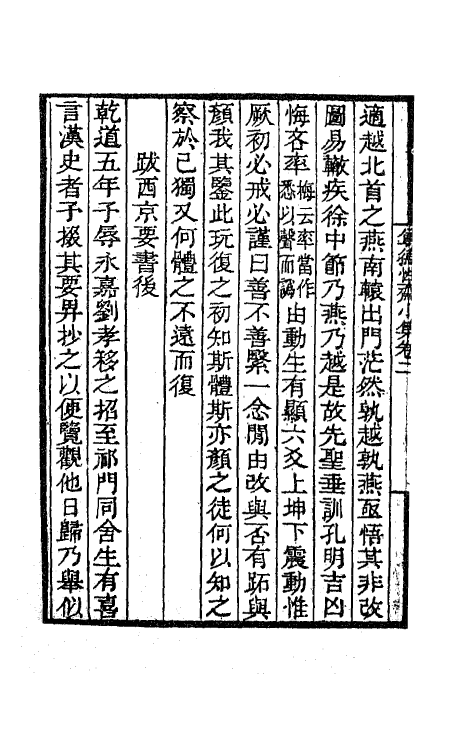 適越北首之燕南轅出門茫然孰越孰燕亟悟其非改
圖易轍疾徐中節乃燕乃越是故先聖垂訓孔明吉凶
悔吝率悔云率當作悉以聲而譌由動生有顯六爻上坤下震動惟
厥初必戒必謹曰善不善緊一念閒由改與否有跖與
顏我其鑒此玩復之初知斯體斯亦顏之徒何以知之
察於己獨又何體之不遠而復
跋西京要書後
乾道五年予辱永嘉劉孝移之招至祁門同舍生有喜
言漢史者予掇其要畀抄之以便覽觀他日歸乃舉似
小集卷二